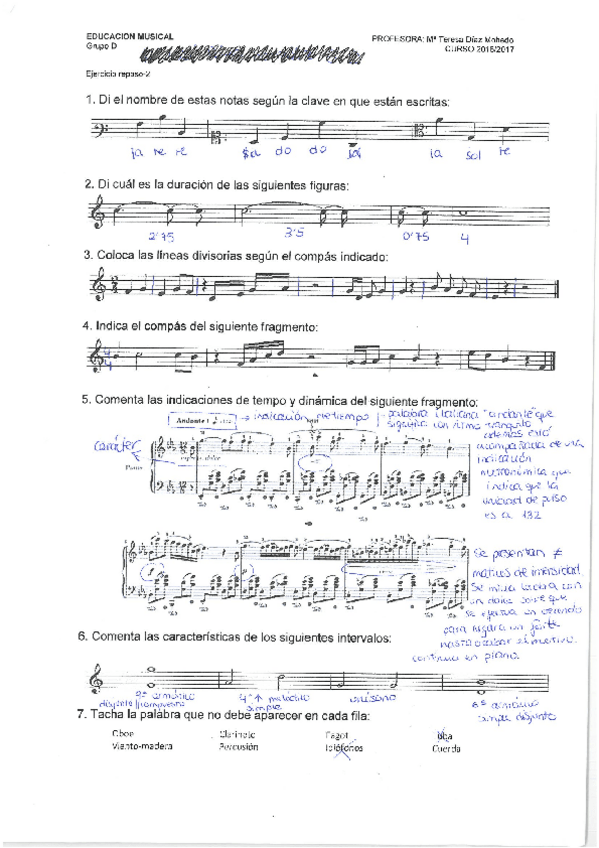 EDUCACION MUSICAL
PROFESORA: Mª Teresa Díaz Mohedo
Grupo D
CURSO 2016/2017
Ejercicio repaso-2
1. Di el nombre de estas notas según la clave en que están escritas:
la re re do do la sol re
2. Di cuál es la duración de las siguientes figuras:
2'75 3'5 0'75 4
3. Coloca las líneas divisorias según el compás indicado:
4. Indica el compás del siguiente fragmento:
5. Comenta las indicaciones de tempo y dinámica del siguiente fragmento:
Andante
→ indicación de tiempo
palabra italiana "andante" que
significa un ritmo tranquilo
además está
acompañada de una
carácter
indicación
Piano
metronómica que
indica que la
unidad de pulso
es a 132
Se presentan ≠
matices de intensidad
Se inicia la obra con
un dolce que
se
para llegar a un forte
hasta acabar el motivo.
continua en piano.
6. Comenta las características de los siguientes intervalos:
9ª armónico
disjunto/compuesto
4ª ↑ melódico
simple
unísono
6ª armónico
simple disjunto
7. Tacha la palabra que no debe aparecer en cada fila:
Oboe Clarinete Fagot Tuba
Viento-madera Percusión Idiófonos Cuerda